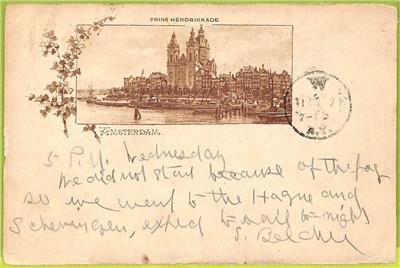 PRINS HENDRIKKADE
AMSTERDAM.
W
N.Y.
5 P.M. Wednesday
We did not start because of the fog
so we went to the Hague and
Scheveningen, expect to sail to-night
S. Belcher